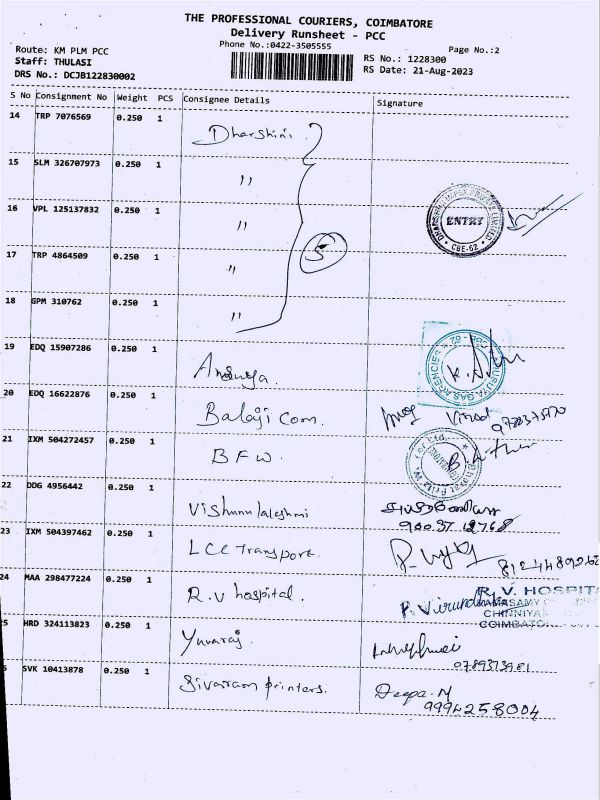 THE PROFESSIONAL COURIERS, COIMBATORE
Delivery Runsheet - PCC
Phone No.:0422-3505555
Page No.:2
Route: KM PLM PCC
Staff: THULASI
DRS No.: DCJB122830002
RS No.: 1228300
RS Date: 21-Aug-2023
S No Consignment No Weight PCS Consignee Details Signature
14 TRP 7076569 0.250 1 Dharshini
15 SLM 326707973 0.250 1 "
16 VPL 125137832 0.250 1 " ENTRY CBE-62
17 TRP 4864509 0.250 1 " 5
18 GPM 310762 0.250 1 "
19 EDQ 15907286 0.250 1 GAS AGENCIES
20 EDQ 16622876 0.250 1 Balaji Com.
21 IXM 504272457 0.250 1 BFW.
22 DDG 4956442 0.250 1 Vishnulakshmi
23 IXM 504397462 0.250 1 LCC Transport.
24 MAA 298477224 0.250 1 R.V hospital. R. V. HOSPITA
COIMBATOR
25 HRD 324113823 0.250 1 Yuvaraj.
SVK 10413878 0.250 1 Sivaram printers. Deepa.M
9994258004